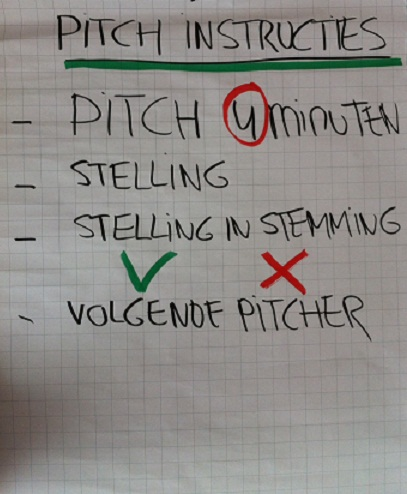 PITCH INSTRUCTIES
- PITCH 4 MINUTEN
- STELLING
- STELLING IN STEMMING
✓ ✗
- VOLGENDE PITCHER